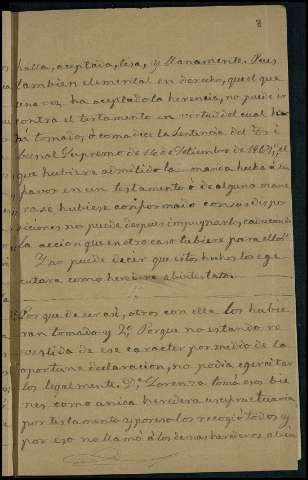 8
halla, aceptada, lisa, y llanamente. Pues
tambien elemental en derecho, que el que
una vez ha aceptado la herencia, no puede ir
contra el testamento en virtud del cual
tomado, ó como dice la Sentencia del Tri
bunal Supremo de 16 de Setiembre de 1863, "el
que hubiere admitido la manda hecha á su
favor en un testamento ó de alguna mane
ra se hubiese conformado con sus dispo
siciones no puede despues impugnarlo, caducando
la accion que en otro caso tubiere para ello."
Y no puede decir que estos hechos los ege
cutara como heredera abintestato.
Porque de ser así, otros con ella los hubie
ran tomado y 2.º Porque no estando re
vestida de ese caracter por medio de la
oportuna declaracion, no podía egercitar
los legalmente. D.ª Lorenza tomó esos bie
nes como única heredera usufructuaria
por testamento y por eso los recogió todos y
por eso no llamó á los demas herederos